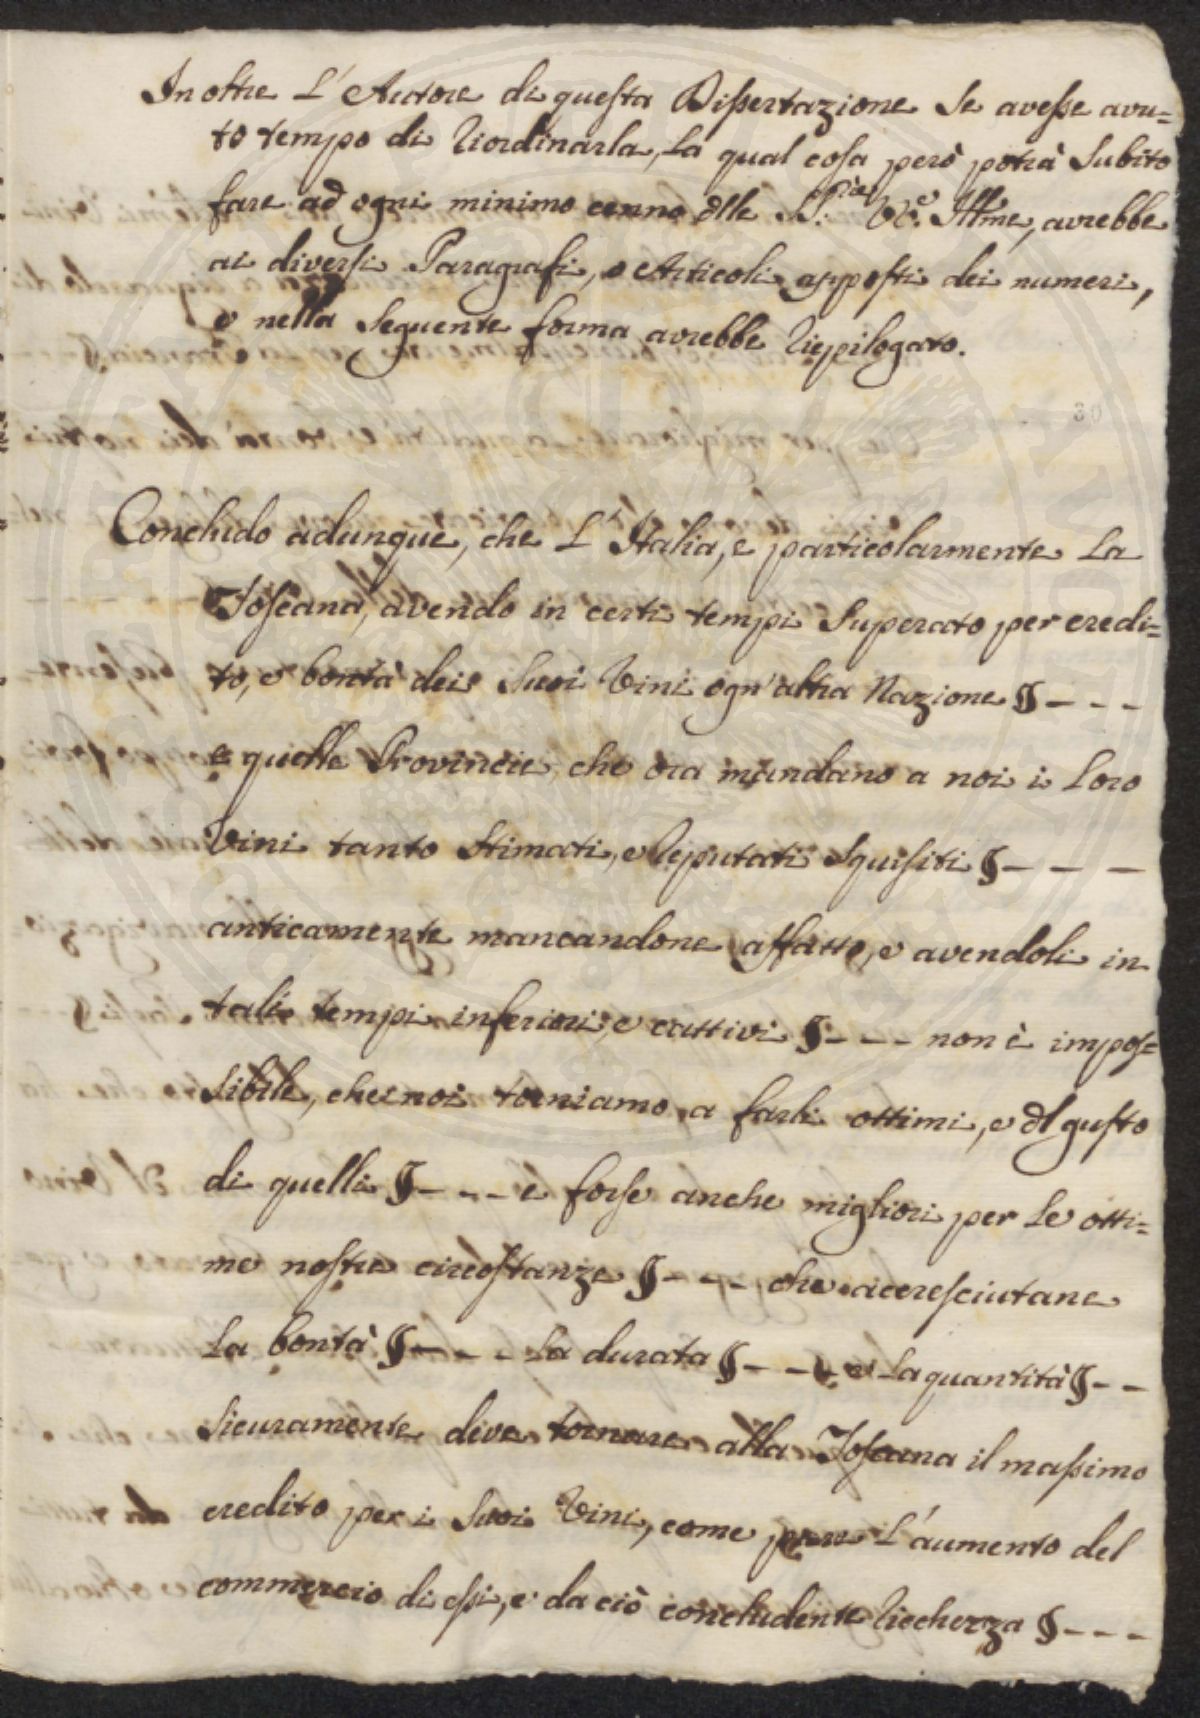 Inoltre L'Autore di questa Dissertazione se avesse avu=
to tempo di riordinarla, La qual cosa però potrà subito
fare ad ogni minimo cenno dlle SS:rie VV.e Illme, avrebbe
ai diversi Paragrafi, o Articoli apposti dei numeri,
e nella seguente forma avrebbe riepilogato.
30
Conchido adunque, che L'Italia, e particolarmente La
Toscana, avendo in certi tempi superato per credi=
to, e bontà dei suoi Vini ogn'altra Nazione § - - -
e quelle Provincie che ora mandano a noi i Loro
Vini tanto stimati, e reputati squisiti § - - -
anticamente mancandone affatto, e avendoli in
tali tempi inferiori, e cattivi § - - - non è impos=
sibile, che noi torniamo a farli ottimi, e dl gusto
di quelli § - - - e forse anche migliori per Le otti=
me nostre circostanze § - - - che accresciutane
La bontà § - - - La durata § - - - e La quantità § - -
sicuramente deve tornare alla Toscana il massimo
credito per i suoi Vini, come pure L'aumento del
commercio di essi, e da ciò concludente ricchezza § - - -